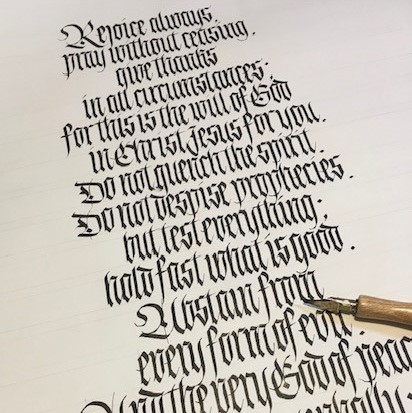 Rejoice always,
pray without ceasing,
give thanks
in all circumstances;
for this is the will of God
in Christ Jesus for you.
Do not quench the spirit.
Do not despise prophecies.
but test everything;
hold fast what is good.
Abstain from
every form of evil.
And the very God of peac
wholly